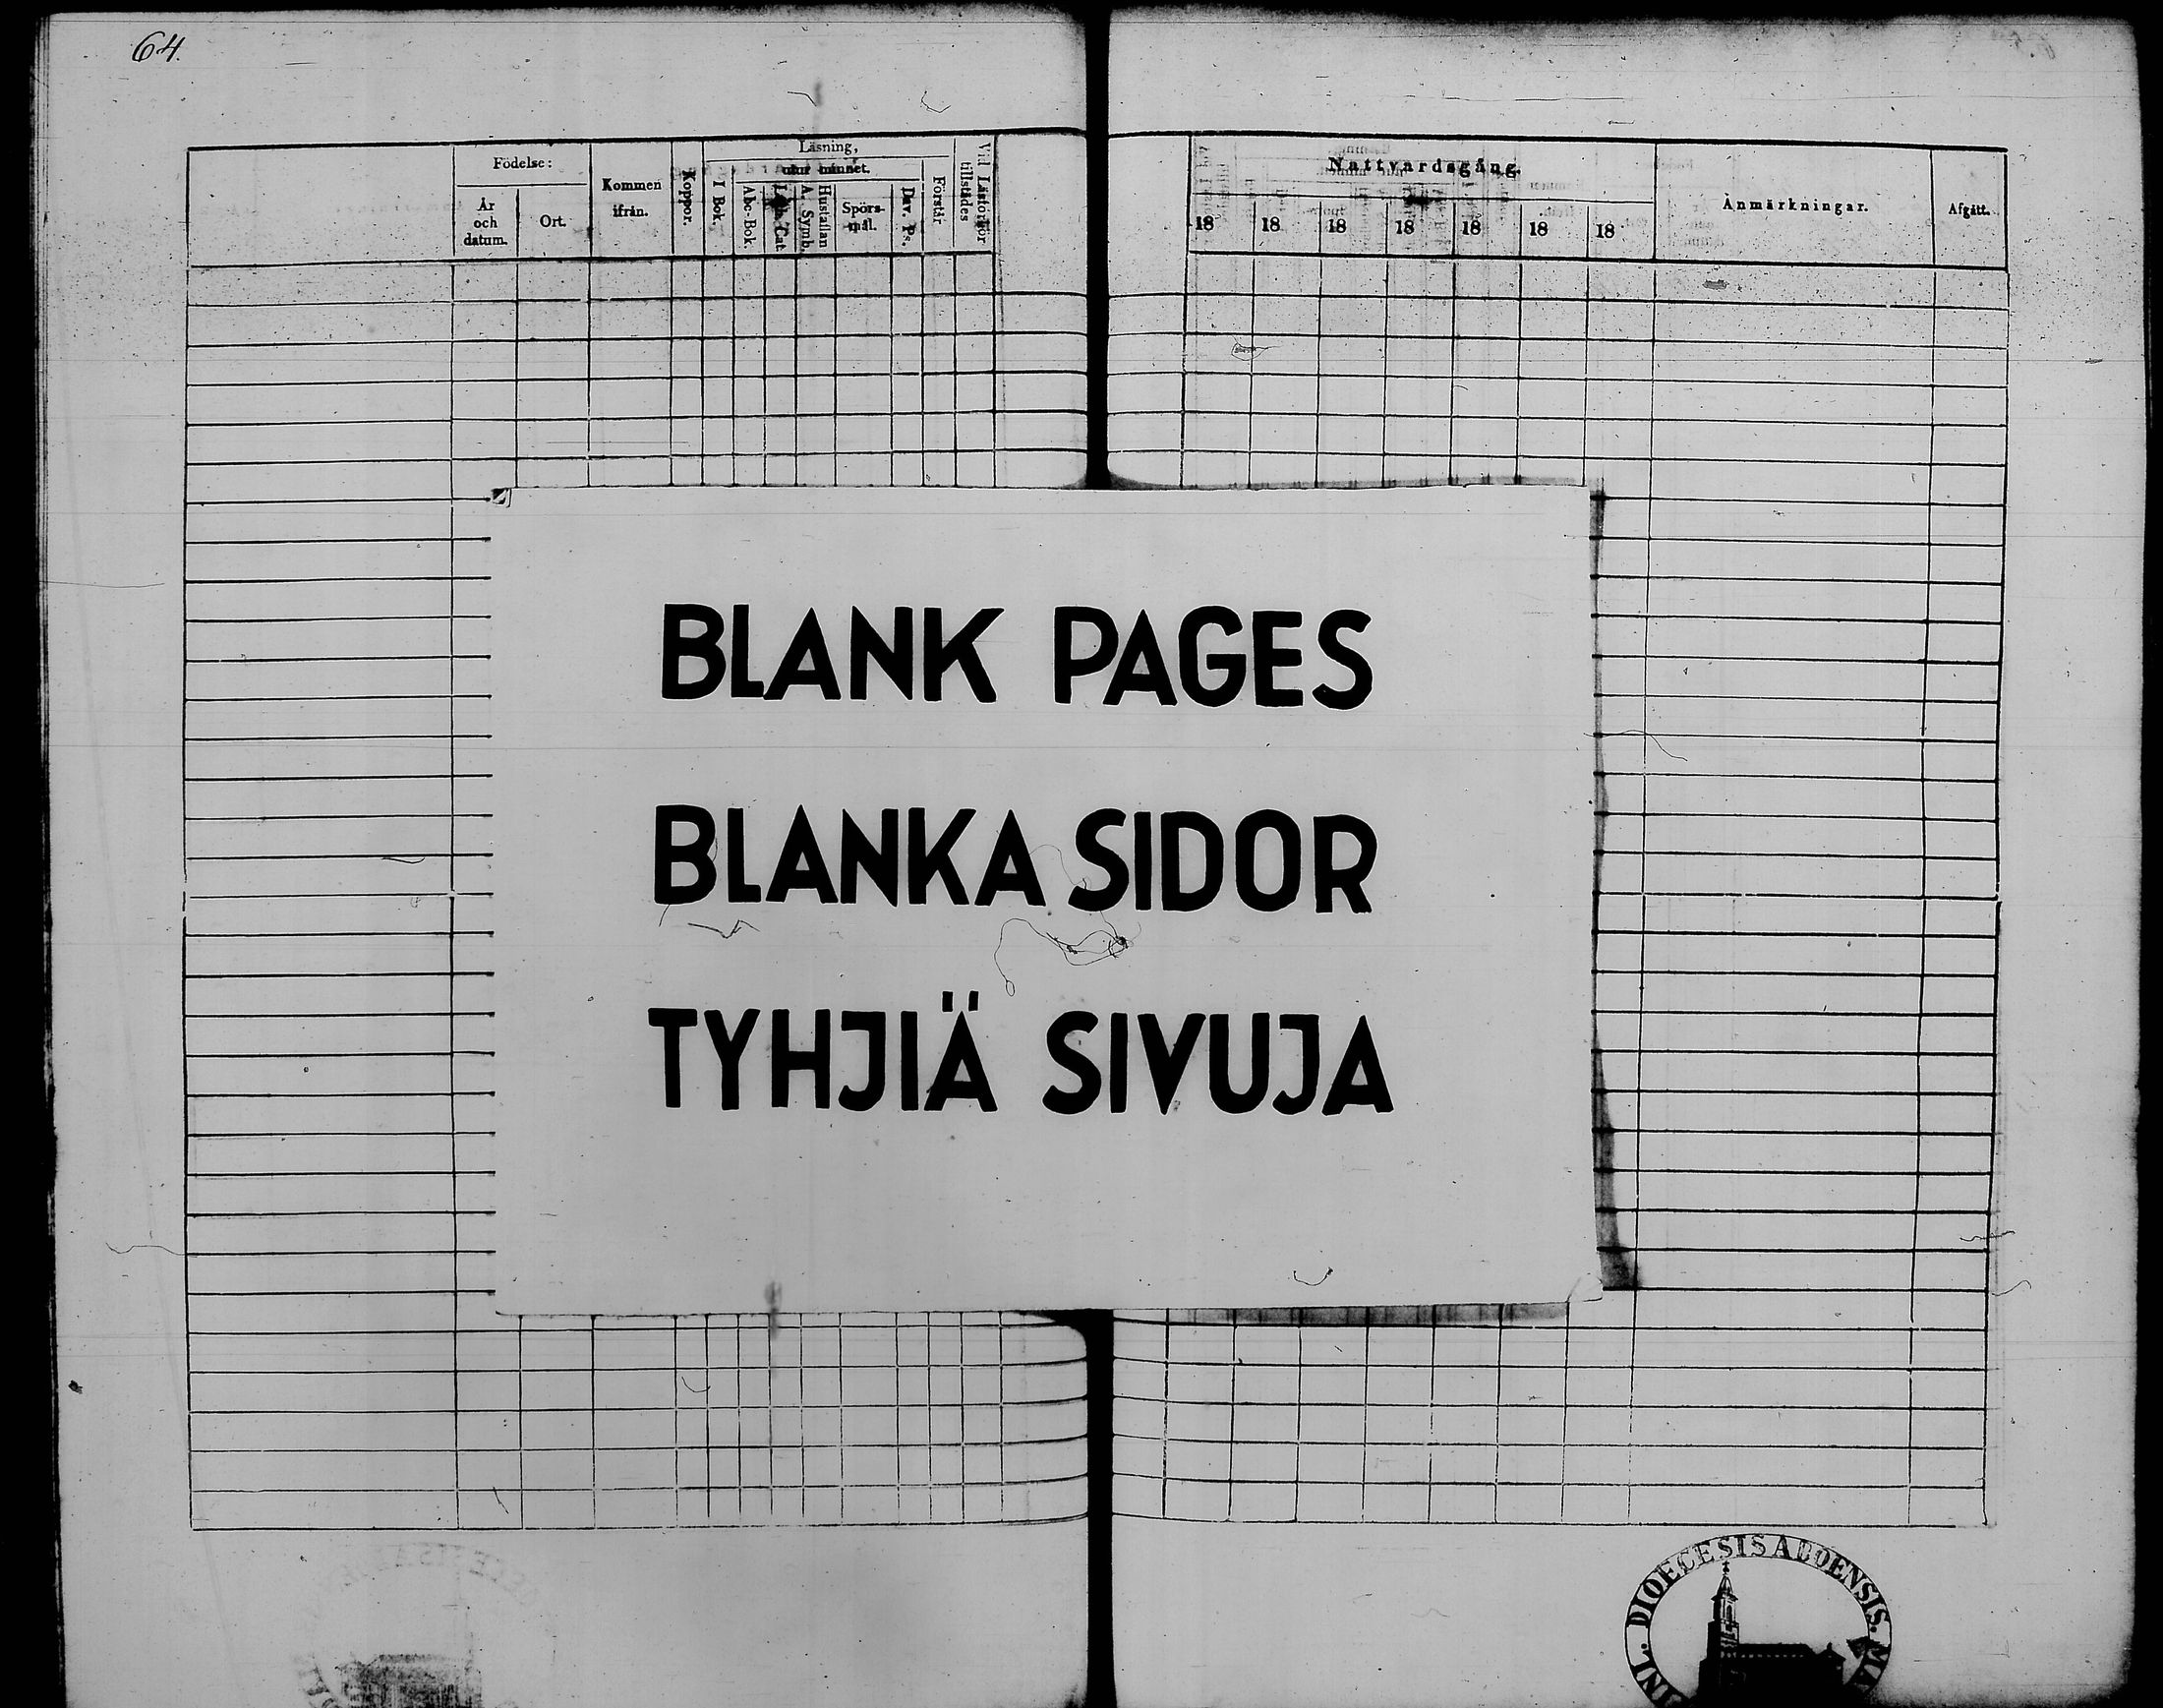 64.
Födelse:
År
och
datum.
Ort.
Kommen
ifrån.
Koppor.
Läsning,
utur minnet.
I Bok.
Abc-Bok
Luth. Cat.
Hustaflan
A. Symb.
Spörs-
mål.
Dav. Ps.
Förstår.
Vid Läsförhör
tillstädes
Nattvardsgång.
18 18 18 18 18 18 18
Anmärkningar.
Afgått.
BLANK PAGES
BLANKA SIDOR
TYHJIÄ SIVUJA
DIOECESIS ABOENSIS.